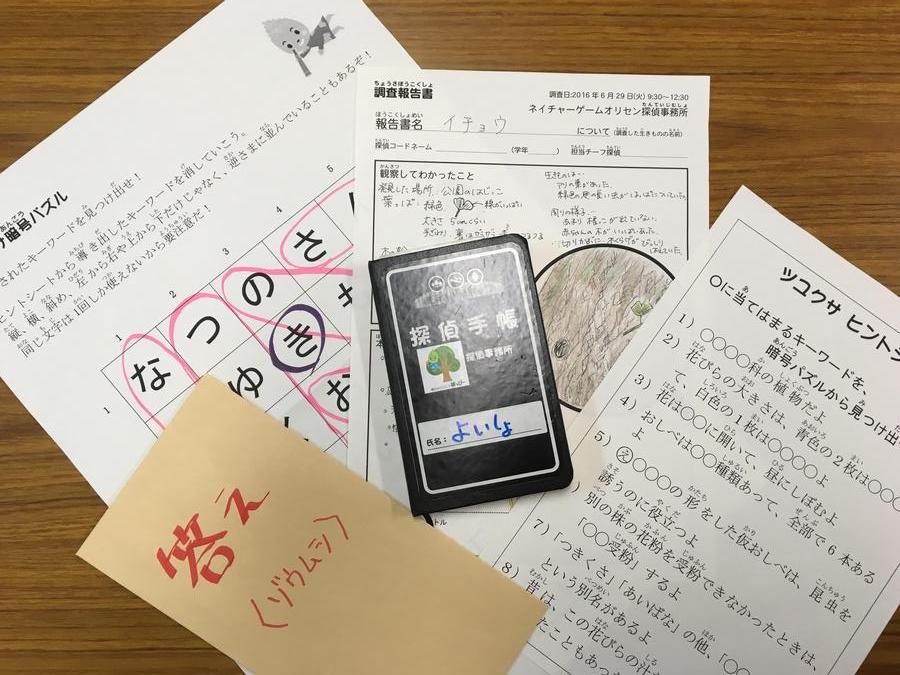 暗号パズル
されたキーワードを見つけ出せ！
ヒントシートから導き出したキーワードを消していこう。
縦、横、斜め、左から右や上から下だけじゃなく、逆さまに並んでいることもあるぞ！
同じ文字は1回しか使えないから要注意だ！
1 2 3 4 5
1 な つ の さ
ゆ き
お
ちょうさほうこくしょ
調査報告書
調査日:2016年6月29日(火) 9:30～12:30
たんていじむしょ
ネイチャーゲームオリセン探偵事務所
ほうこくしょめい
報告書名 イチョウ について (調査した生きものの名前)
探偵コードネーム (学年 ) 担当チーフ探偵
かんさつ
観察してわかったこと
発見した場所:公園のはじっこ
葉っぱ: 緑色
大きさ 5cmくらい
生きものは…
アリの巣があった。
周りの様子…
探偵手帳
探偵事務所
氏名: よいしょ
答え
(ゾウムシ)
ツユクサ ヒント
〇に当てはまるキーワードを、
暗号パズルから見つけ出
1) 〇〇〇〇科の植物だよ
2) 花びらの大きさは、青色の2枚は〇〇〇
て、白色の1枚は〇〇〇〇よ
3) 花は〇〇に開いて、昼にしぼむよ
4) おしべは〇〇種類あって、全部で6本ある
よ
5) え〇〇〇の形をした仮おしべは、昆虫を
誘うのに役立つよ
別の株の花粉を受粉できなかったときは、
「〇〇受粉」するよ
7) 「つきくさ」「あいばな」の他、「〇〇
という別名があるよ
8) 昔は、この花びらの汁
たこともあっ